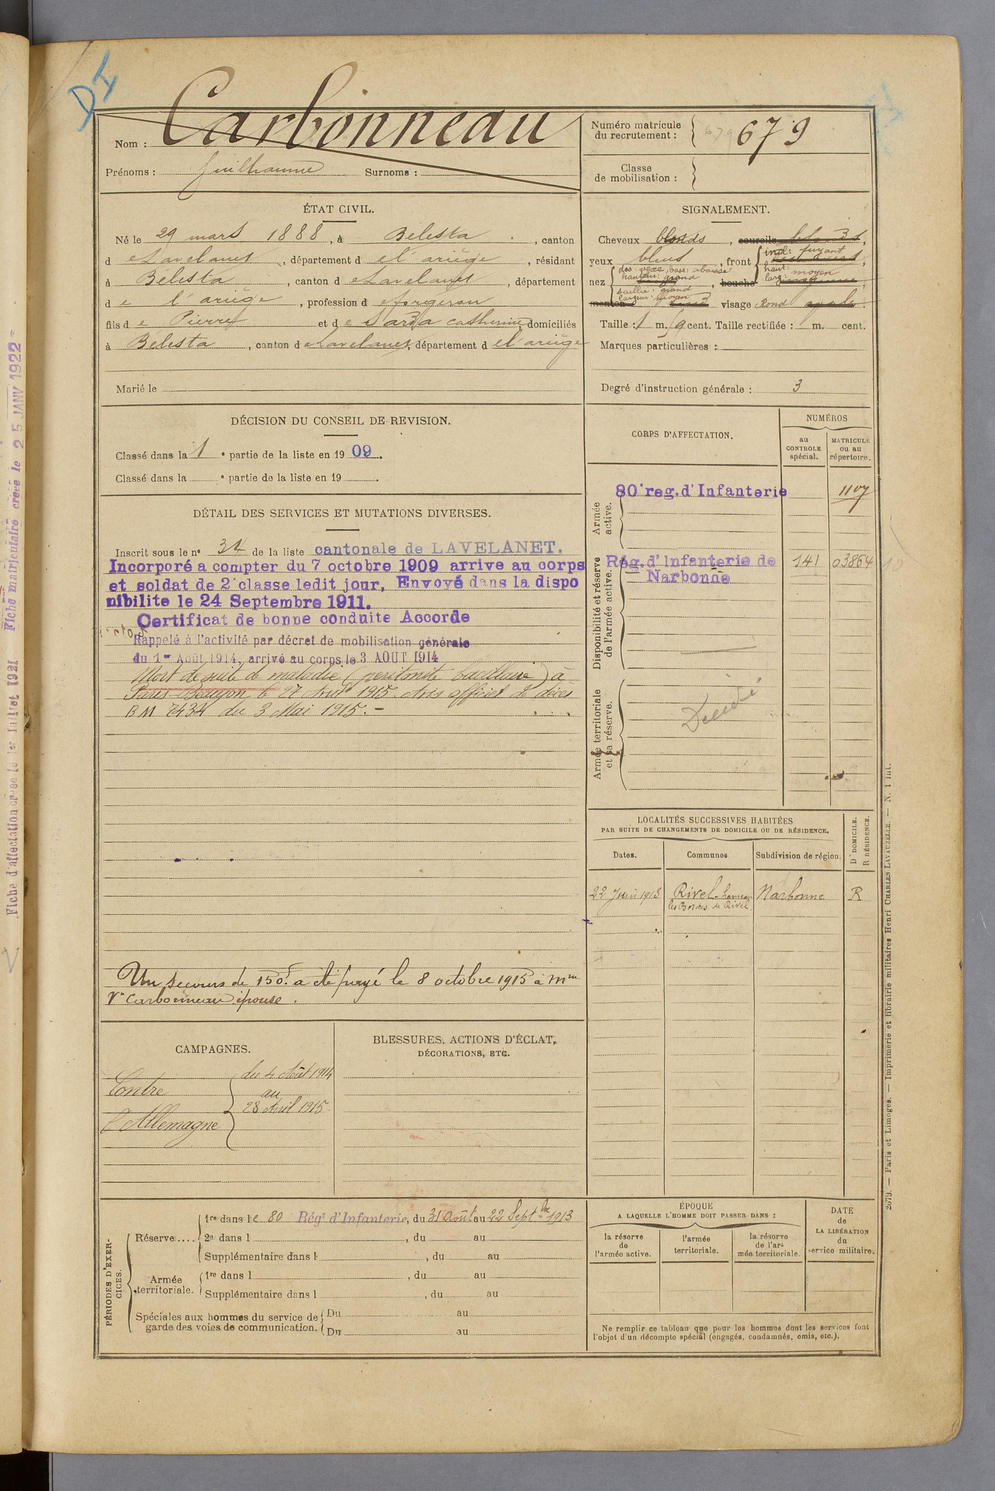 DI
Nom : Carbonneau
Prénoms : Guilhaume Surnoms :
Numéro matricule du recrutement : 679
Classe de mobilisation :
ÉTAT CIVIL.
Né le 29 mars 1888, à Bélesta, canton
d e Lavelanet, département d e l'ariège, résidant
à Bélesta, canton d e Lavelanet, département
d e l'ariège, profession d e forgeron
fils d e Pierre et d e Sarda catherine domiciliés
à Bélesta, canton d e Lavelanet, département d e l'ariège
Marié le
SIGNALEMENT.
Cheveux blonds, sourcils blonds,
yeux bleus, front incl: fuyant
haut: moyen
nez dos: base: abaissé
hauteur: grand
saillie: grand
visage Rond
Taille : 1 m. cent. Taille rectifiée : 1 m. cent.
Marques particulières :
Degré d'instruction générale : 3
DÉCISION DU CONSEIL DE REVISION.
Classé dans la 1e partie de la liste en 1909.
Classé dans la e partie de la liste en 19 .
DÉTAIL DES SERVICES ET MUTATIONS DIVERSES.
Inscrit sous le n° 34 de la liste cantonale de LAVELANET.
Incorporé a compter du 7 octobre 1909 arrive au corps
et soldat de 2e classe ledit jour, Envoyé dans la dispo
nibilite le 24 Septembre 1911.
Certificat de bonne conduite Accorde
Rappelé à l'activité par décret de mobilisation générale
du 1er Août 1914, arrivé au corps le 3 AOUT 1914
Mort de suite de maladie (peritonite) à
Paris Beaujon le 27 1915 avis officiel de décès
BM 7434 du 3 Mai 1915.-
Un secours de 150f a été payé le 8 octobre 1915 à Mme
Ve Carbonneau épouse.
CORPS D'AFFECTATION.
NUMÉROS
au CONTROLE spécial.
MATRICULE ou au répertoire.
Armée active.
80e reg. d'Infanterie 1107
Disponibilité et réserve de l'armée active.
Rég. d'Infanterie de Narbonne 141 03864
Armée territoriale et sa réserve.
Décédé
LOCALITÉS SUCCESSIVES HABITÉES
PAR SUITE DE CHANGEMENTS DE DOMICILE OU DE RÉSIDENCE.
Dates. Communes Subdivision de région. D' DOMICILE. R RÉSIDENCE.
22 Juin 1913 Rivel hameau les Bordes de Rivel Narbonne R
CAMPAGNES.
Contre l'Allemagne
du 4 Août 1914
au
28 Avril 1915
BLESSURES, ACTIONS D'ÉCLAT, DÉCORATIONS, ETC.
PÉRIODES D'EXERCICES.
Réserve.... 1re dans le 80 Régt d'Infanterie, du 31 Août au 22 Septbre 1913
2e dans l , du au
Supplémentaire dans l , du au
Armée territoriale. 1re dans l , du au
Supplémentaire dans l , du au
Spéciales aux hommes du service de garde des voies de communication. Du au
Du au
ÉPOQUE
A LAQUELLE L'HOMME DOIT PASSER DANS :
la réserve de l'armée active.
l'armée territoriale.
la réserve de l'armée territoriale.
DATE de LA LIBÉRATION du service militaire.
Ne remplir ce tableau que pour les hommes dont les services font
l'objet d'un décompte spécial (engagés, condamnés, omis, etc.).
2079. — Paris et Limoges. — Imprimerie et librairie militaires Henri CHARLES LAVAUZELLE. — N. 1 int.
Fiche d'affectation créée le 1er Juillet 1921 Fiche matriculaire créée le 25 JANV 1922